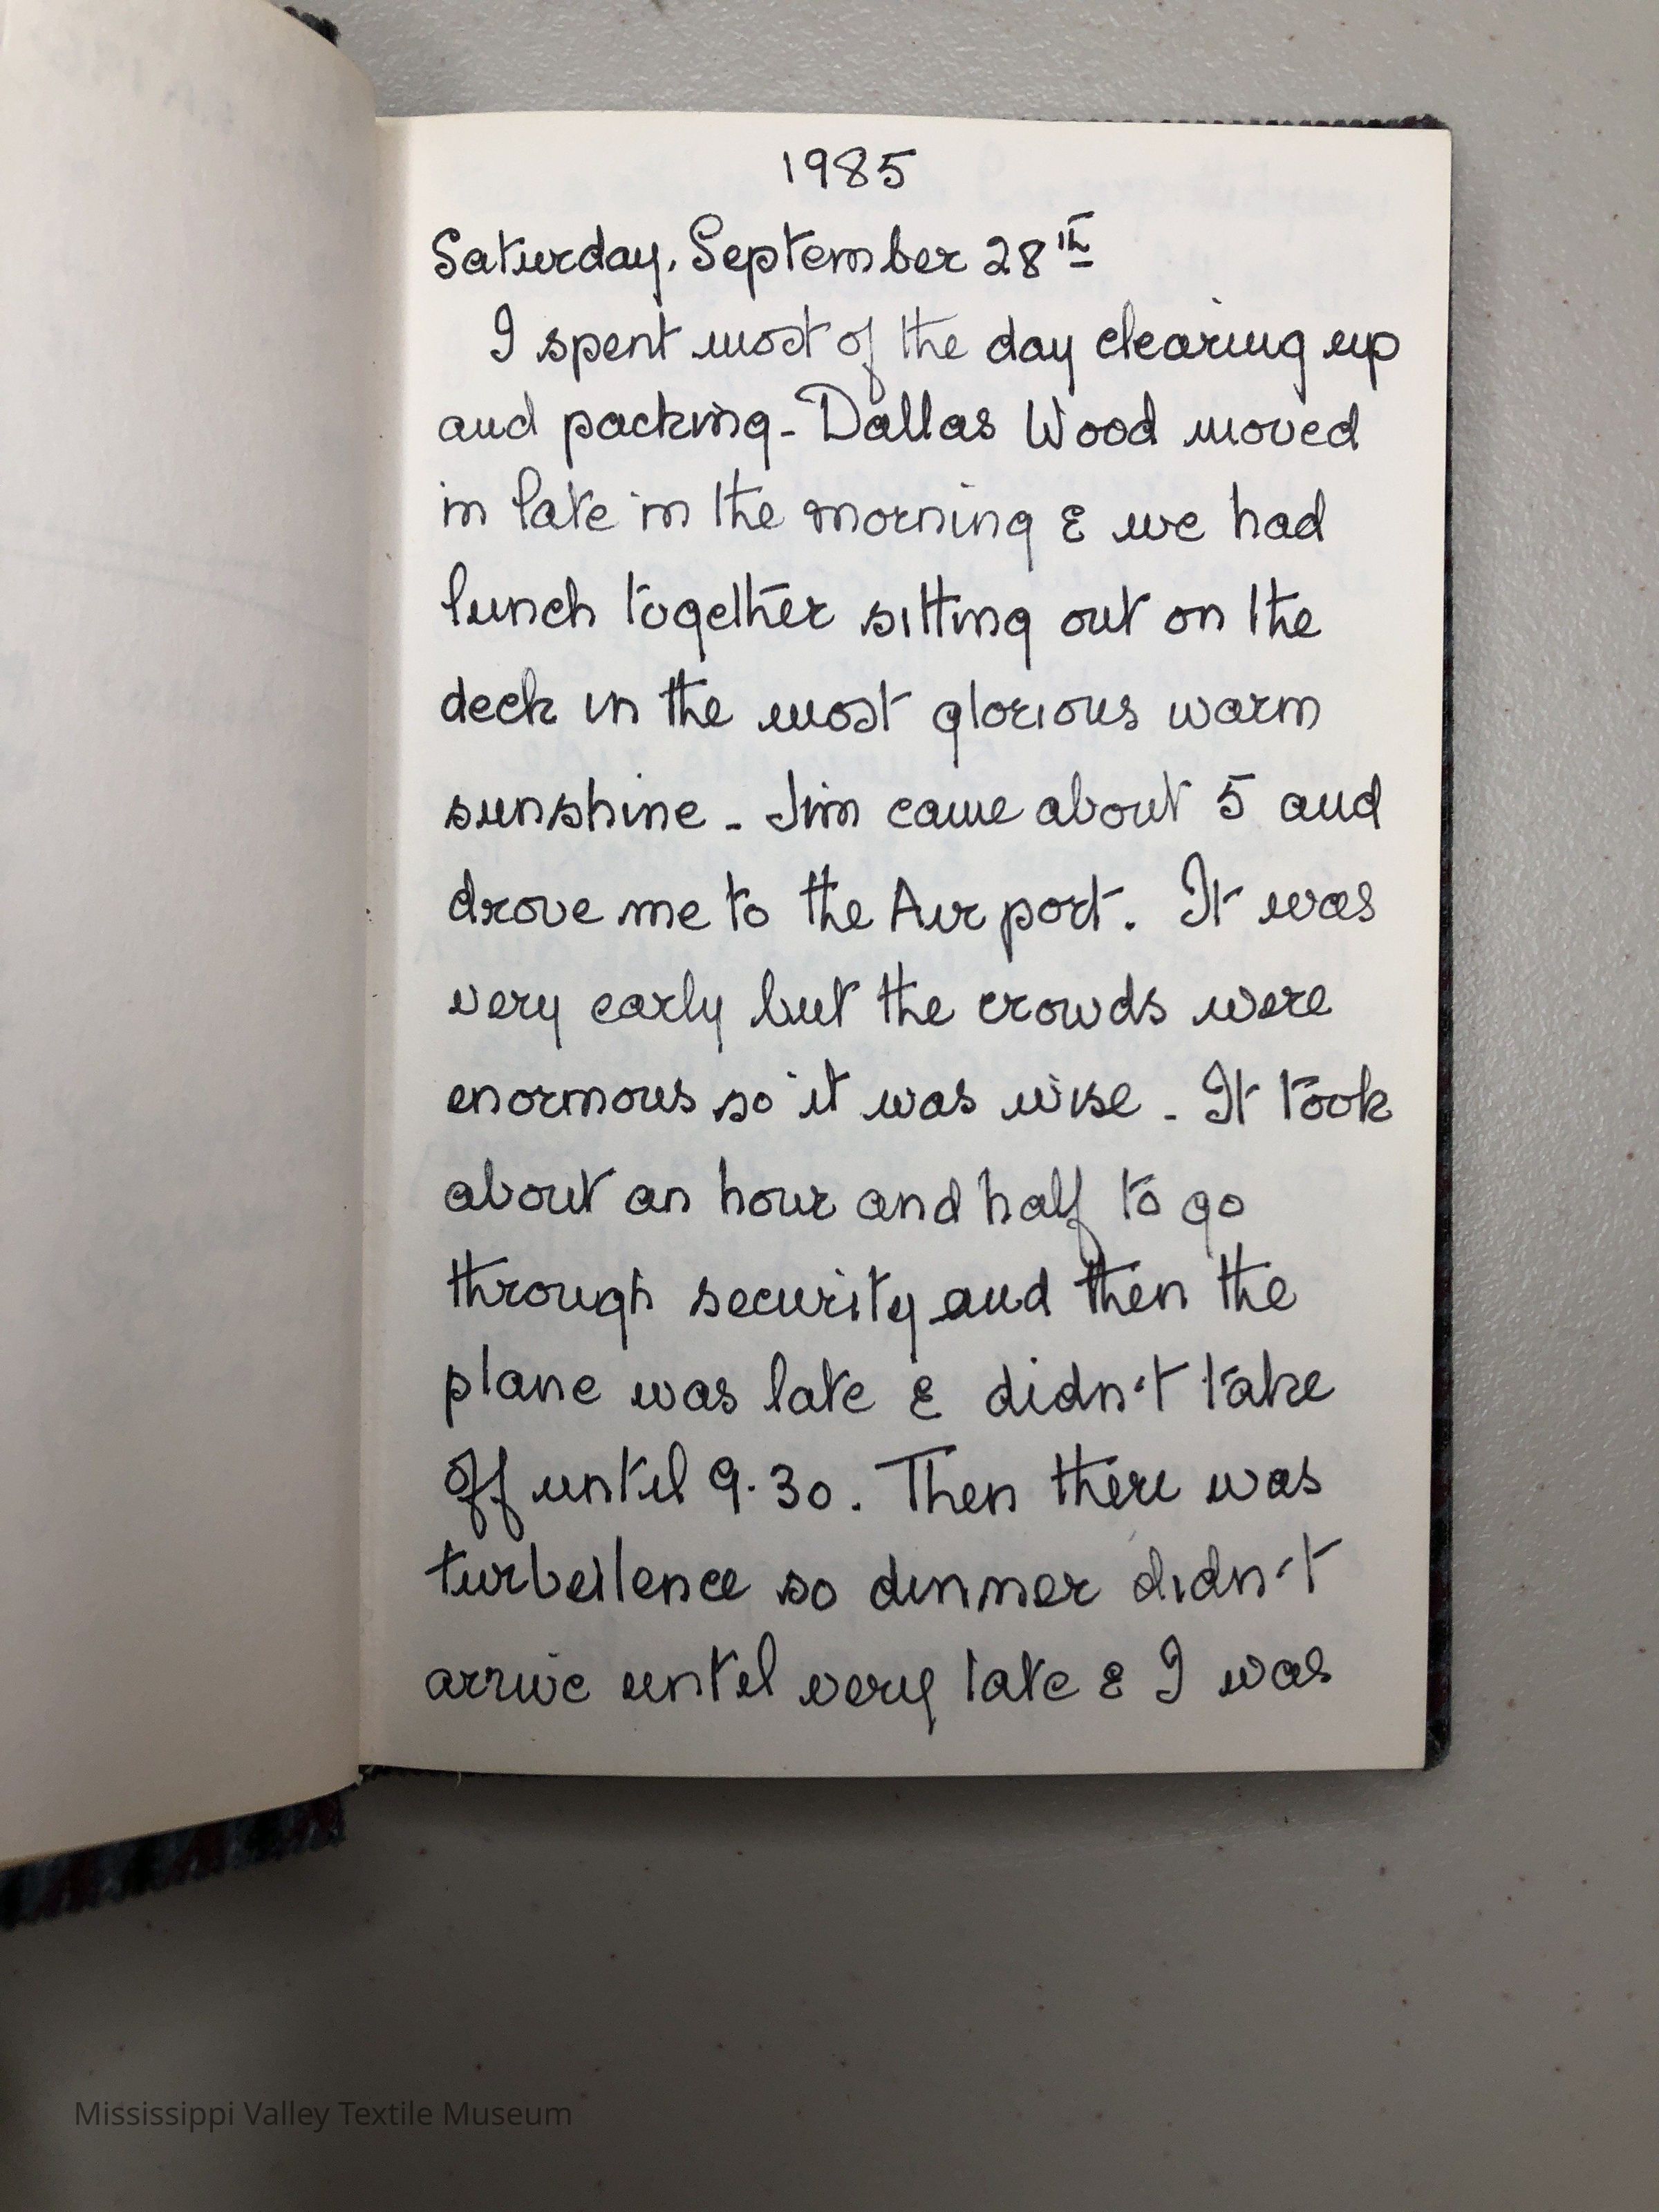 1985
Saturday, September 28th
I spent most of the day clearing up
and packing - Dallas Wood moved
in late in the morning & we had
lunch together sitting out on the
deck in the most glorious warm
sunshine - Jim came about 5 and
drove me to the Air port. It was
very early but the crowds were
enormous so it was wise - It took
about an hour and half to go
through security and then the
plane was late & didn't take
off until 9.30. Then there was
turbulence so dinner didn't
arrive until very late & I was
Mississippi Valley Textile Museum